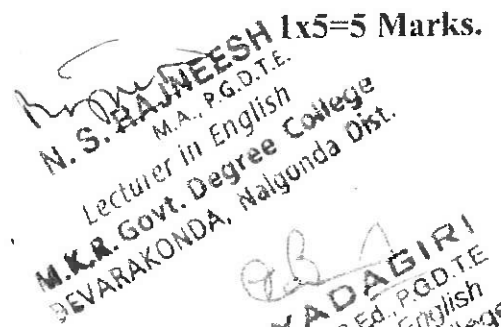 1x5=5 Marks.
N. S. RAJNEESH
M.A., P.G.D.T.E.
Lecturer in English
M.K.R. Govt. Degree College
DEVARAKONDA, Nalgonda Dist.
YADAGIRI
Ed., P.G.D.T.E
English